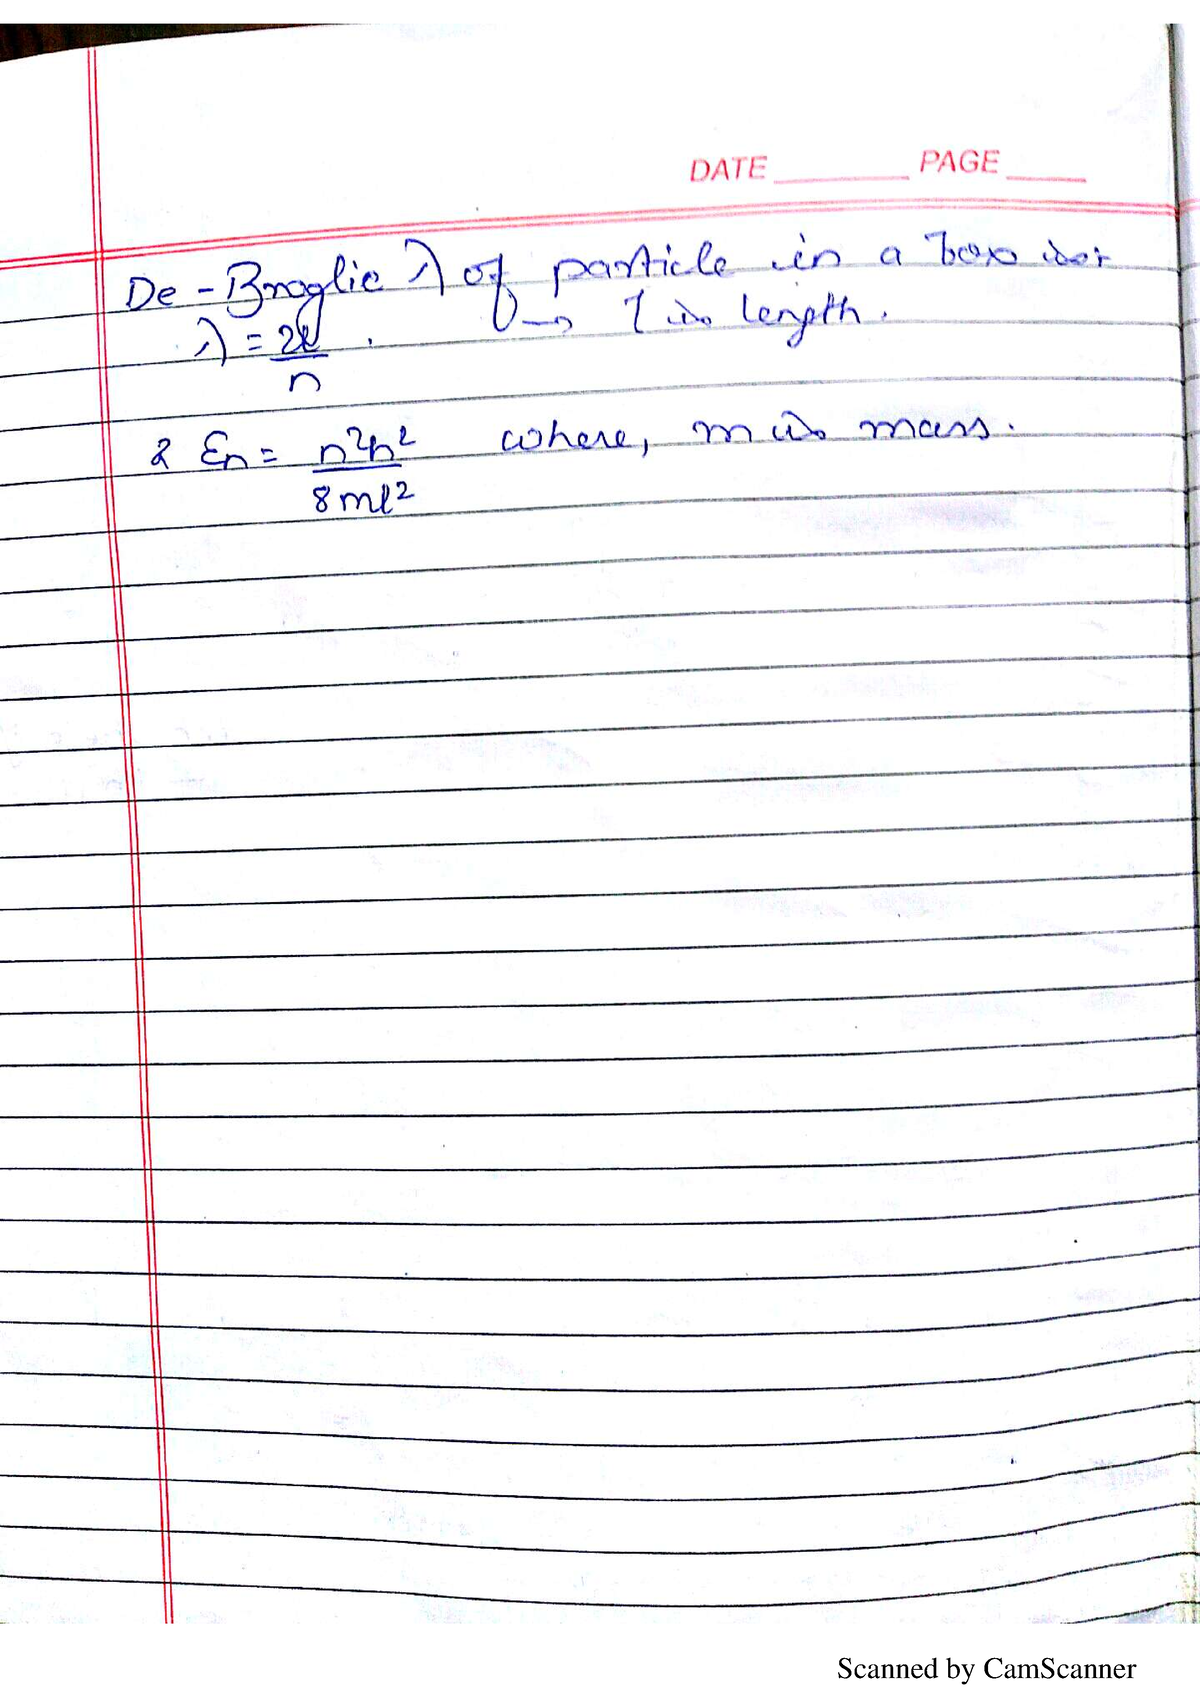 DATE PAGE
De-Broglie λ of particle in a box is:
λ = 2l/n . → l is length.
& En = n²h²/8ml² where, m is mass.
Scanned by CamScanner